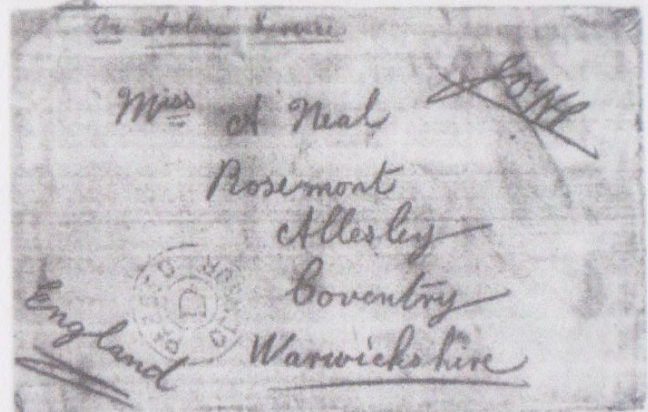 On Active Service
Miss A Neal
Rosemont
Allesley
Coventry
Warwickshire
England
PASSED
CENSOR